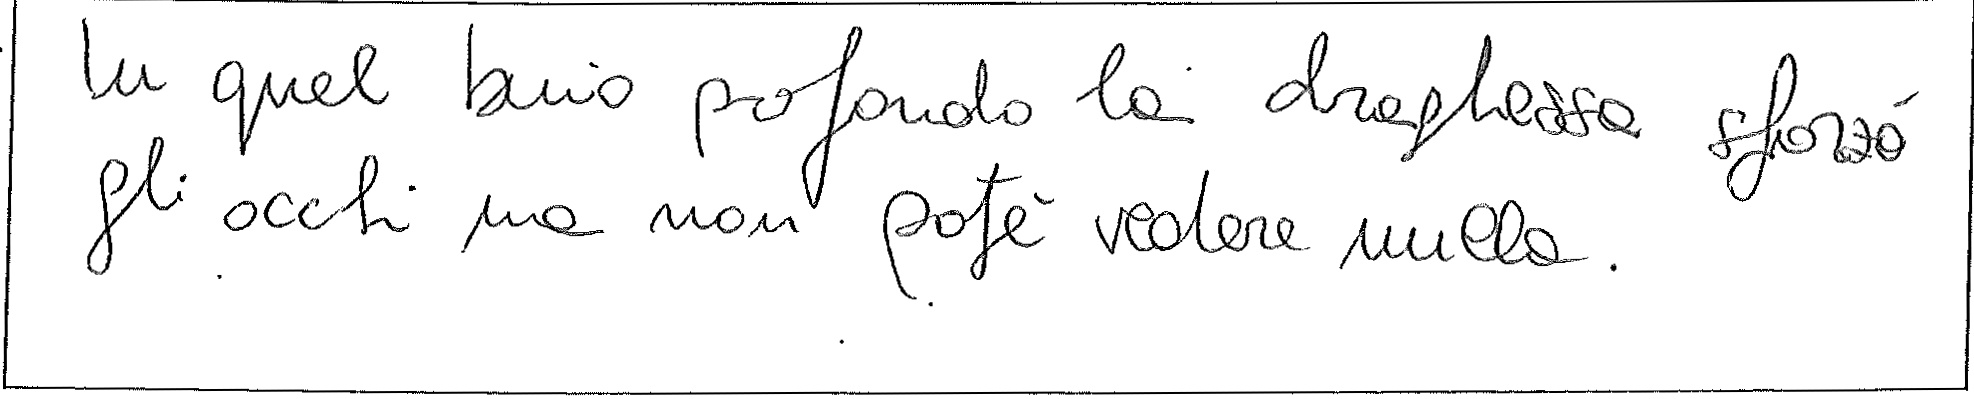 In quel buio pofondo la draghessa sforzó
gli occhi ma non potè vedere nulla.